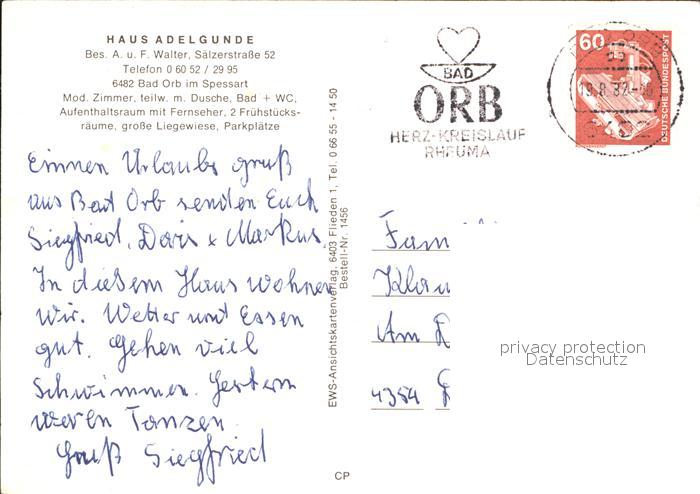 HAUS ADELGUNDE
Bes. A. u. F. Walter, Sälzerstraße 52
Telefon 0 60 52 / 29 95
6482 Bad Orb im Spessart
Mod. Zimmer, teilw. m. Dusche, Bad + WC,
Aufenthaltsraum mit Fernseher, 2 Frühstücks-
räume, große Liegewiese, Parkplätze
Einnen Urlaubs gruß
aus Bad Orb senden Euch
Siegfried, Doris & Markus.
In diesem Haus wohnen
wir. Wetter und Essen
gut. Gehen viel
Schwimmen. Gestern
waren Tanzen.
Gruß Siegfried
EWS-Ansichtskartenverlag, 6403 Flieden 1, Tel. 0 66 55 - 14 50
Bestell-Nr. 1456
CP
BAD
ORB
HERZ-KREISLAUF
RHEUMA
60
DEUTSCHE BUNDESPOST
19.8.82
Fam
Klau
Am
4354
privacy protection
Datenschutz